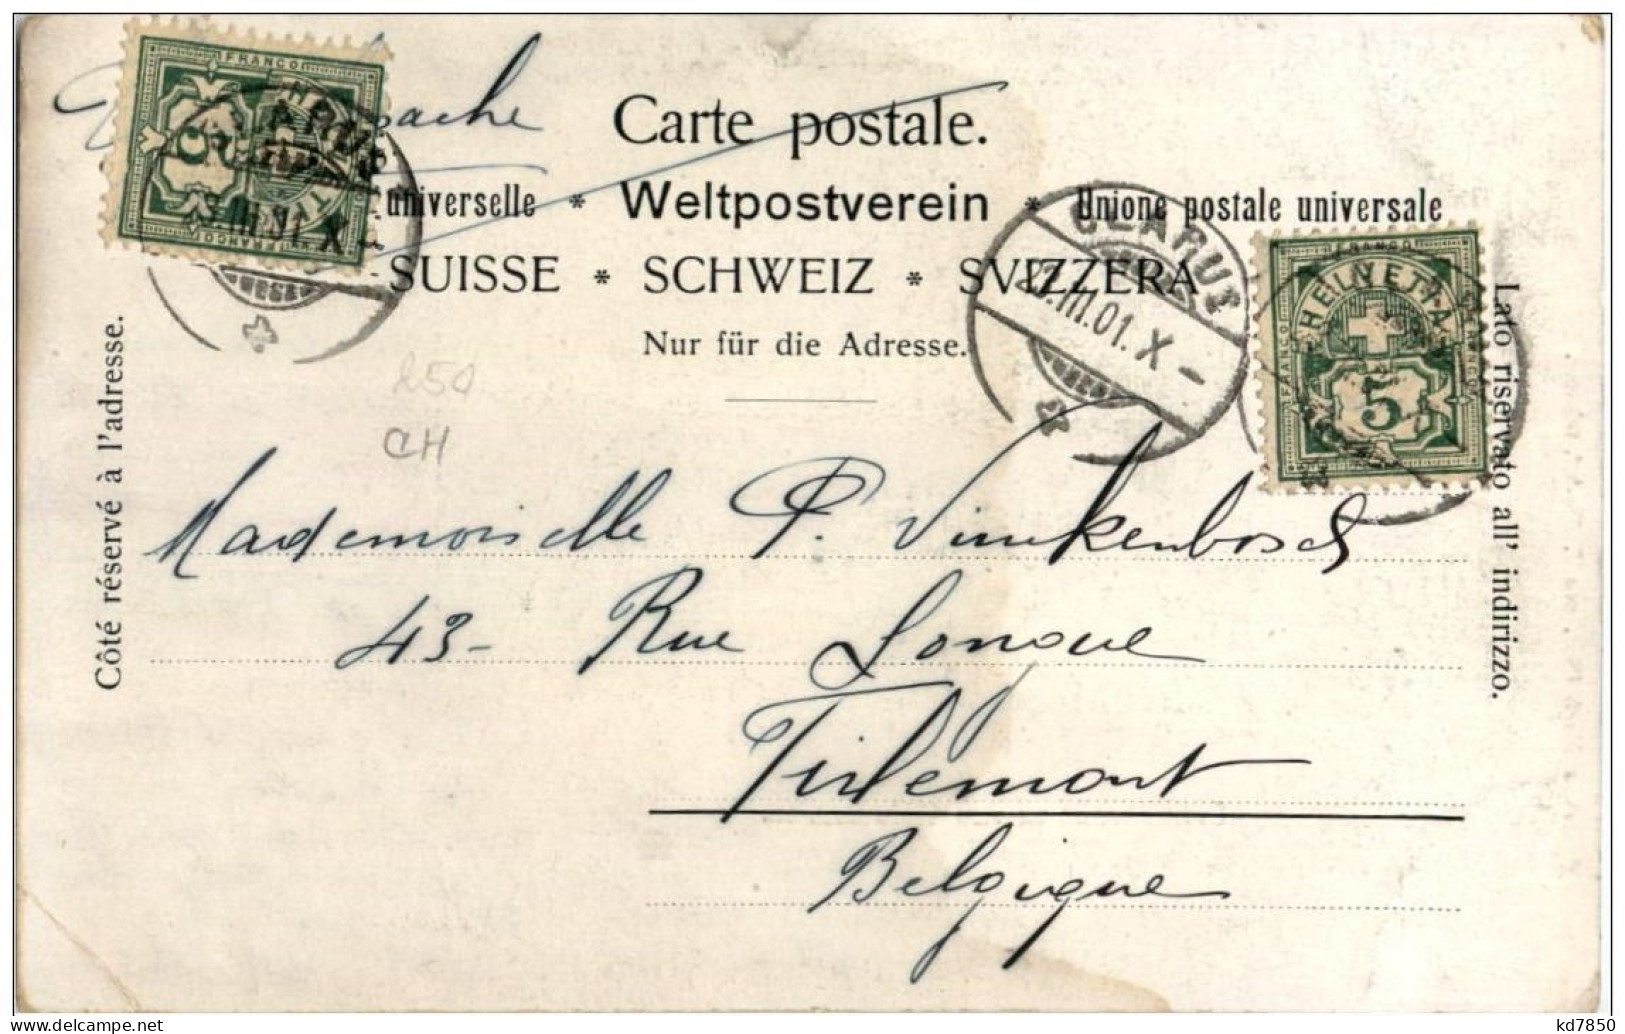 Carte postale.
universelle * Weltpostverein * Unione postale universale
SUISSE * SCHWEIZ * SVIZZERA
Nur für die Adresse.
Côté réservé à l'adresse.
Lato riservato all' indirizzo.
FRANCO
HELVETIA
5
FRANCO
HELVETIA
5
GLARUS
.III.01. X -
250
CH
Mademoiselle P. Vinckenbosch
43 - Rue Longue
Tirlemont
Belgique
delcampe.net
kd7850